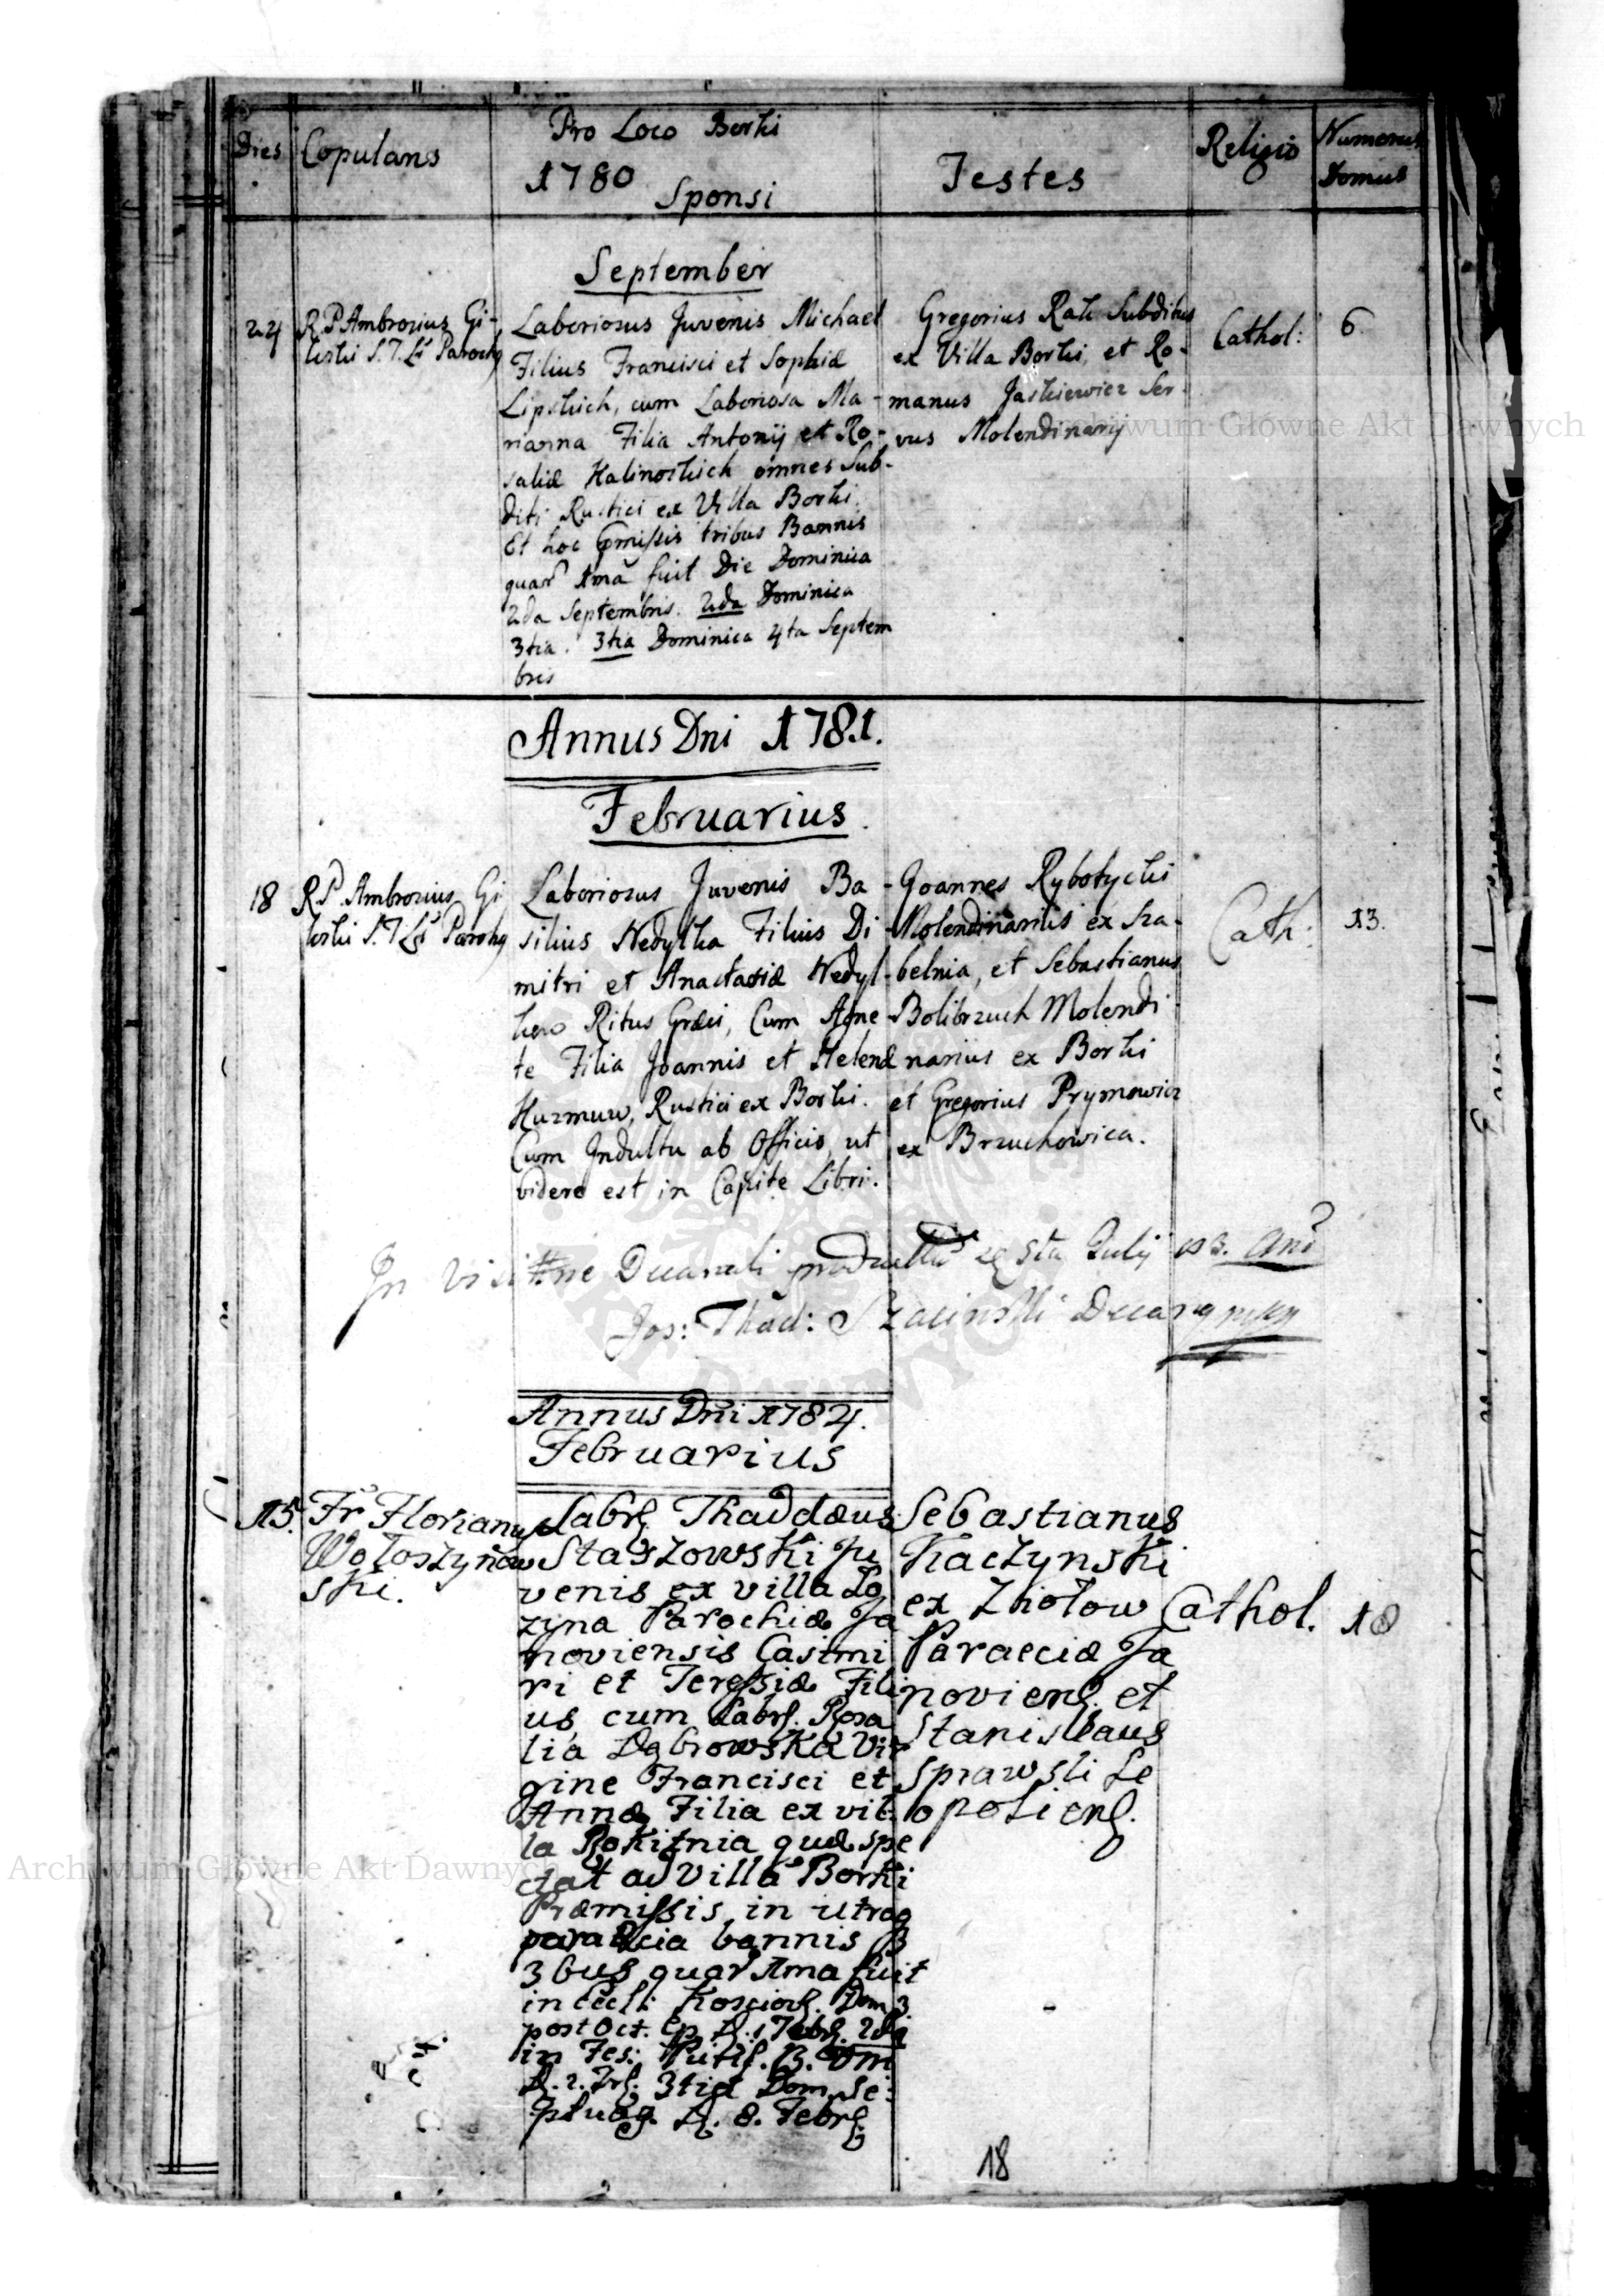 Dies
Copulans
Pro Loco Borki
1780
Sponsi
Testes
Religio
Numerus
Domus
September
24
R. P. Ambrosius Gi-
lerski S. T. Lr Parochg
Laboriosus Juvenis Michael
Filius Francisci et Sophiæ
Lipskich, cum Laboriosa Ma-
rianna Filia Antonij et Ro-
saliæ Kalinoskich omnes Sub-
diti Rustici ex Villa Borki.
Et hoc pmissis tribus Bannis
quar 1ma fuit Die Dominica
2da Septembris. 2da Dominica
3tia. 3tia Dominica 4ta Septem
bris
Gregorius Rak Subditus
ex Villa Borki, et Ro-
manus Jaskiewicz Ser-
vus Molendinarij
Cathol:
6.
Annus Dni 1781.
Februarius.
18
R. P. Ambrosius Gi
lerski S. T. Lr Parochg
Laboriosus Juvenis Ba-
silius Nedylka Filius Di
mitri et Anastasiæ Nedyl-
kow Ritus Græci, Cum Agne
te Filia Joannis et Helenæ
Huzmuw, Rustici ex Borki.
Cum Indultu ab Officio, ut
videre est in Capite Libri.
Joannes Rybotycki
Molendinarius ex Sza-
belnia, et Sebastianus
Bolibrzuch Molendi
narius ex Borki
et Gregorius Prymowicz
ex Brzuchowica.
Cath:
13.
In Visitne Decanali 5ta Julij
Jos: Thad:
Annus Dni 1784.
Februarius
15.
Fr Florianus
Wołoszynow
ski.
Labrs Thaddæus
Staszowski Ju
venis ex villa Ło
zina Parochiæ Ja
noviensis Casimi
ri et Teressiæ Fili
us, cum Labrs. Rosa
lia Dąbrowska Vir
gine Francisci et
Annæ Filia ex vil
la Rokitnia quæ spe
ctat ad Villa Borki
Præmissis in utraq
paræcia bannis
3bus quar 1ma fuit
in Eccli: Dom 3
post Oct. Ep. D. 1 Febrs. 2da
in Fes: Purif. B. Vm
D. 2. Frs. 3tia Dom. Se:
ptuag. D. 8. Febrs.
Sebastianus
Kaczynski
ex Zhołow
Paraeciæ Ja
noviens. et
Stanislaus
Sprawski Le
opoliens.
Cathol.
18
18
Archiwum Główne Akt Dawnych
Archiwum Główne Akt Dawnych
AKT DAWNYCH